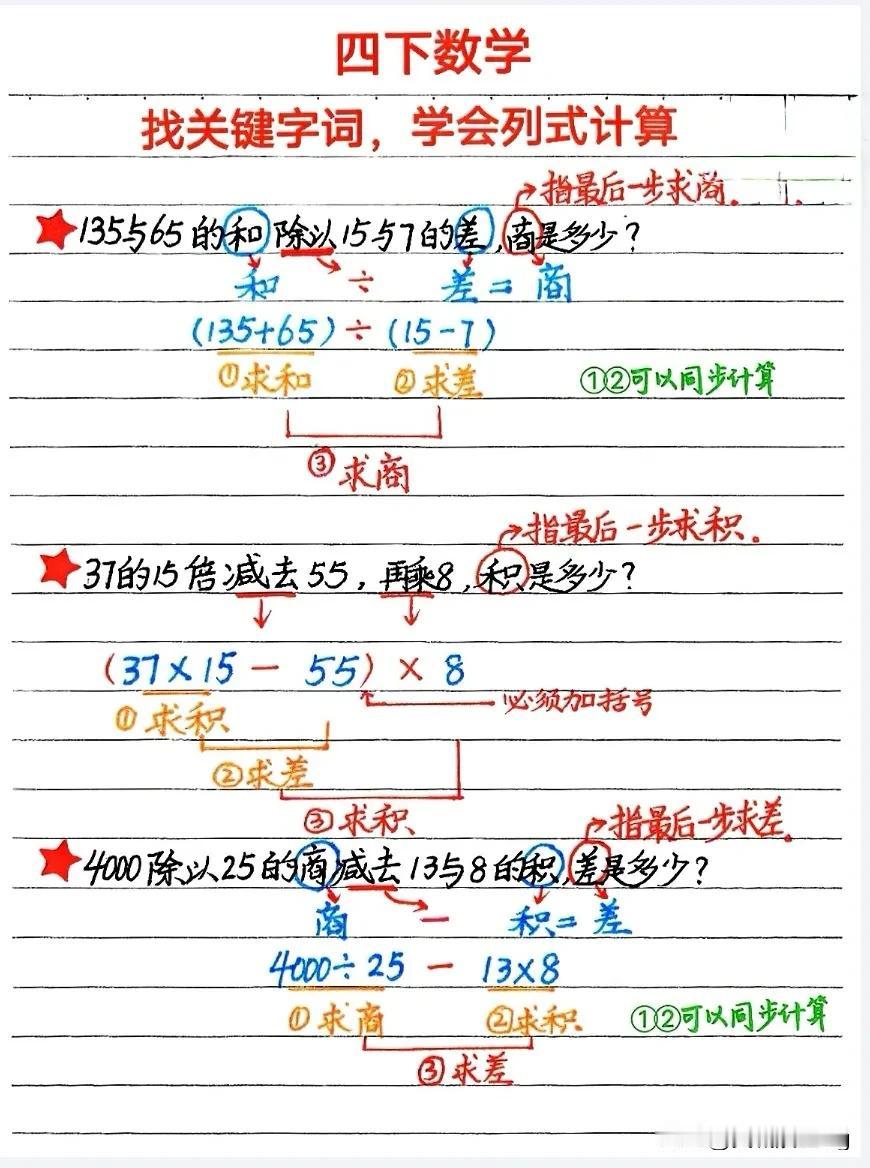 四下数学
找关键字词，学会列式计算
指最后一步求商.
135与65的和除以15与7的差,商是多少?
和 ÷ 差 = 商
(135+65) ÷ (15-7)
①求和 ②求差 ①②可以同步计算
③求商
指最后一步求积.
37的15倍减去55,再乘8,积是多少?
(37×15 - 55) × 8
必须加括号
①求积
②求差
③求积
指最后一步求差.
4000除以25的商减去13与8的积,差是多少?
商 - 积 = 差
4000÷25 - 13×8
①求商 ②求积 ①②可以同步计算
③求差